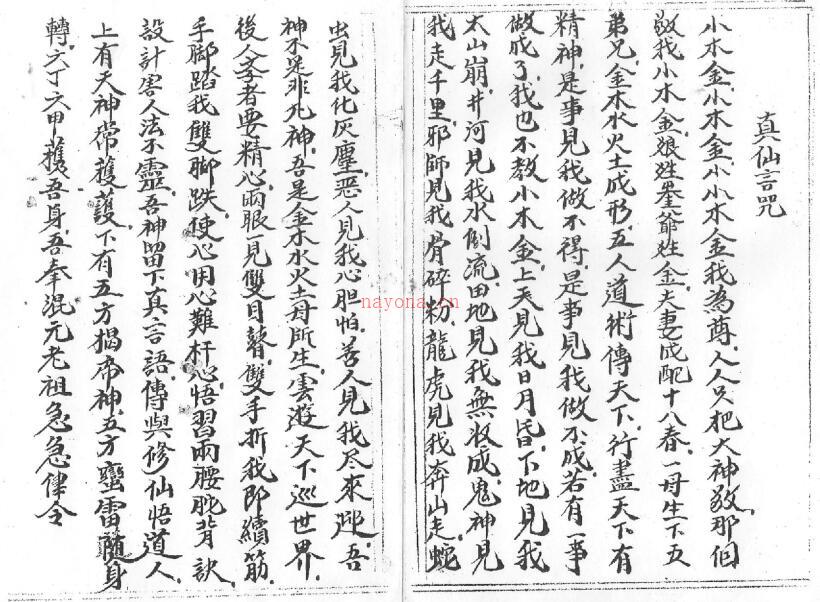 真仙言咒
小木金小木金小小木金我為尊人人只把大神敬那個
敬我小木金娘姓爺姓金夫妻成配十八春一母生下五
弟兄金木水火土成形五人道術傳天下行盡天下有
精神是事見我做不得是事見我做不成若有一事
做成了我也不教小木金上天見我日月昏下地見我
太山崩井河見我水倒流田地見我無收成鬼神見
我走千里邪師見我骨碎粉龍虎見我奔山走蛇
虫見我化灰塵惡人見我心胆怕善人見我尽來迎吾
神不是非凡神吾是金木水火土母所生雲遊天下巡世界
後人孝者要精心兩眼一見雙目瞽雙手折我即續筋
手脚踏我雙脚跌使心用心難杆心悟習兩腰駝背訣
設計害人法不靈吾神留下真言語傳與修仙悟道人
上有天神常護下有五方揭帝神五方蠻雷隨身
轉六丁六甲護吾身吾奉混元老祖急急律令
nayona.cn